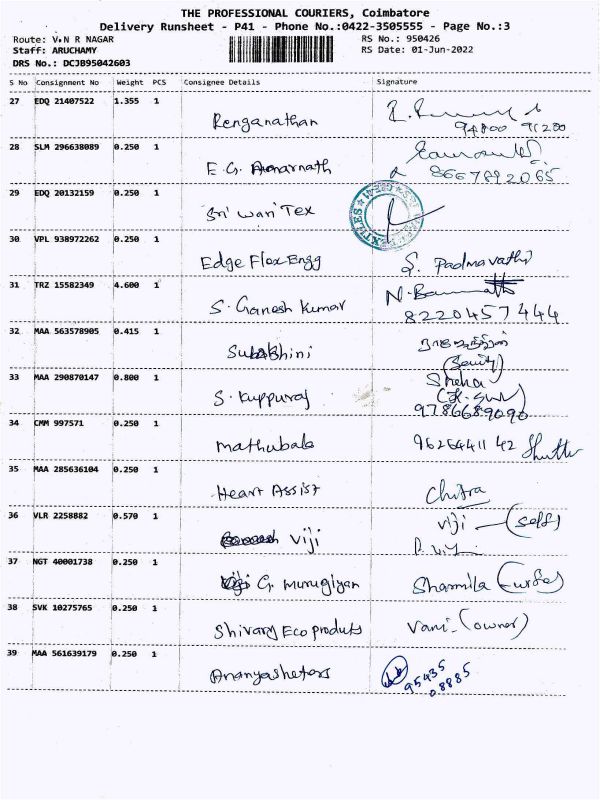 THE PROFESSIONAL COURIERS, Coimbatore
Delivery Runsheet - P41 - Phone No.:0422-3505555 - Page No.:3
Route: V.N R NAGAR RS No.: 950426
Staff: ARUCHAMY RS Date: 01-Jun-2022
DRS No.: DCJB95042603
S No Consignment No Weight PCS Consignee Details Signature
27 EDQ 21407522 1.355 1 Renganathan
94800 91200
28 SLM 296638089 0.250 1 E.G. Amarnath
8667892065
29 EDQ 20132159 0.250 1 Sri Wari Tex
30 VPL 938972262 0.250 1 Edge Flex Engg S. Padmavathi
31 TRZ 15582349 4.600 1 S. Ganesh Kumar
8220457444
32 MAA 563578905 0.415 1
33 MAA 290870147 0.800 1 S. Kuppuraj Sneha
9786689090
34 CMM 997571 0.250 1 Mathubala 9626441142
35 MAA 285636104 0.250 1 Heart Assist Chitra
36 VLR 2258882 0.570 1 Viji Viji (Self)
37 NGT 40001738 0.250 1 G. Murugiyan Sharmila (wife)
38 SVK 10275765 0.250 1 Shivary Eco produts Vani. (owner)
39 MAA 561639179 0.250 1 95435
08885